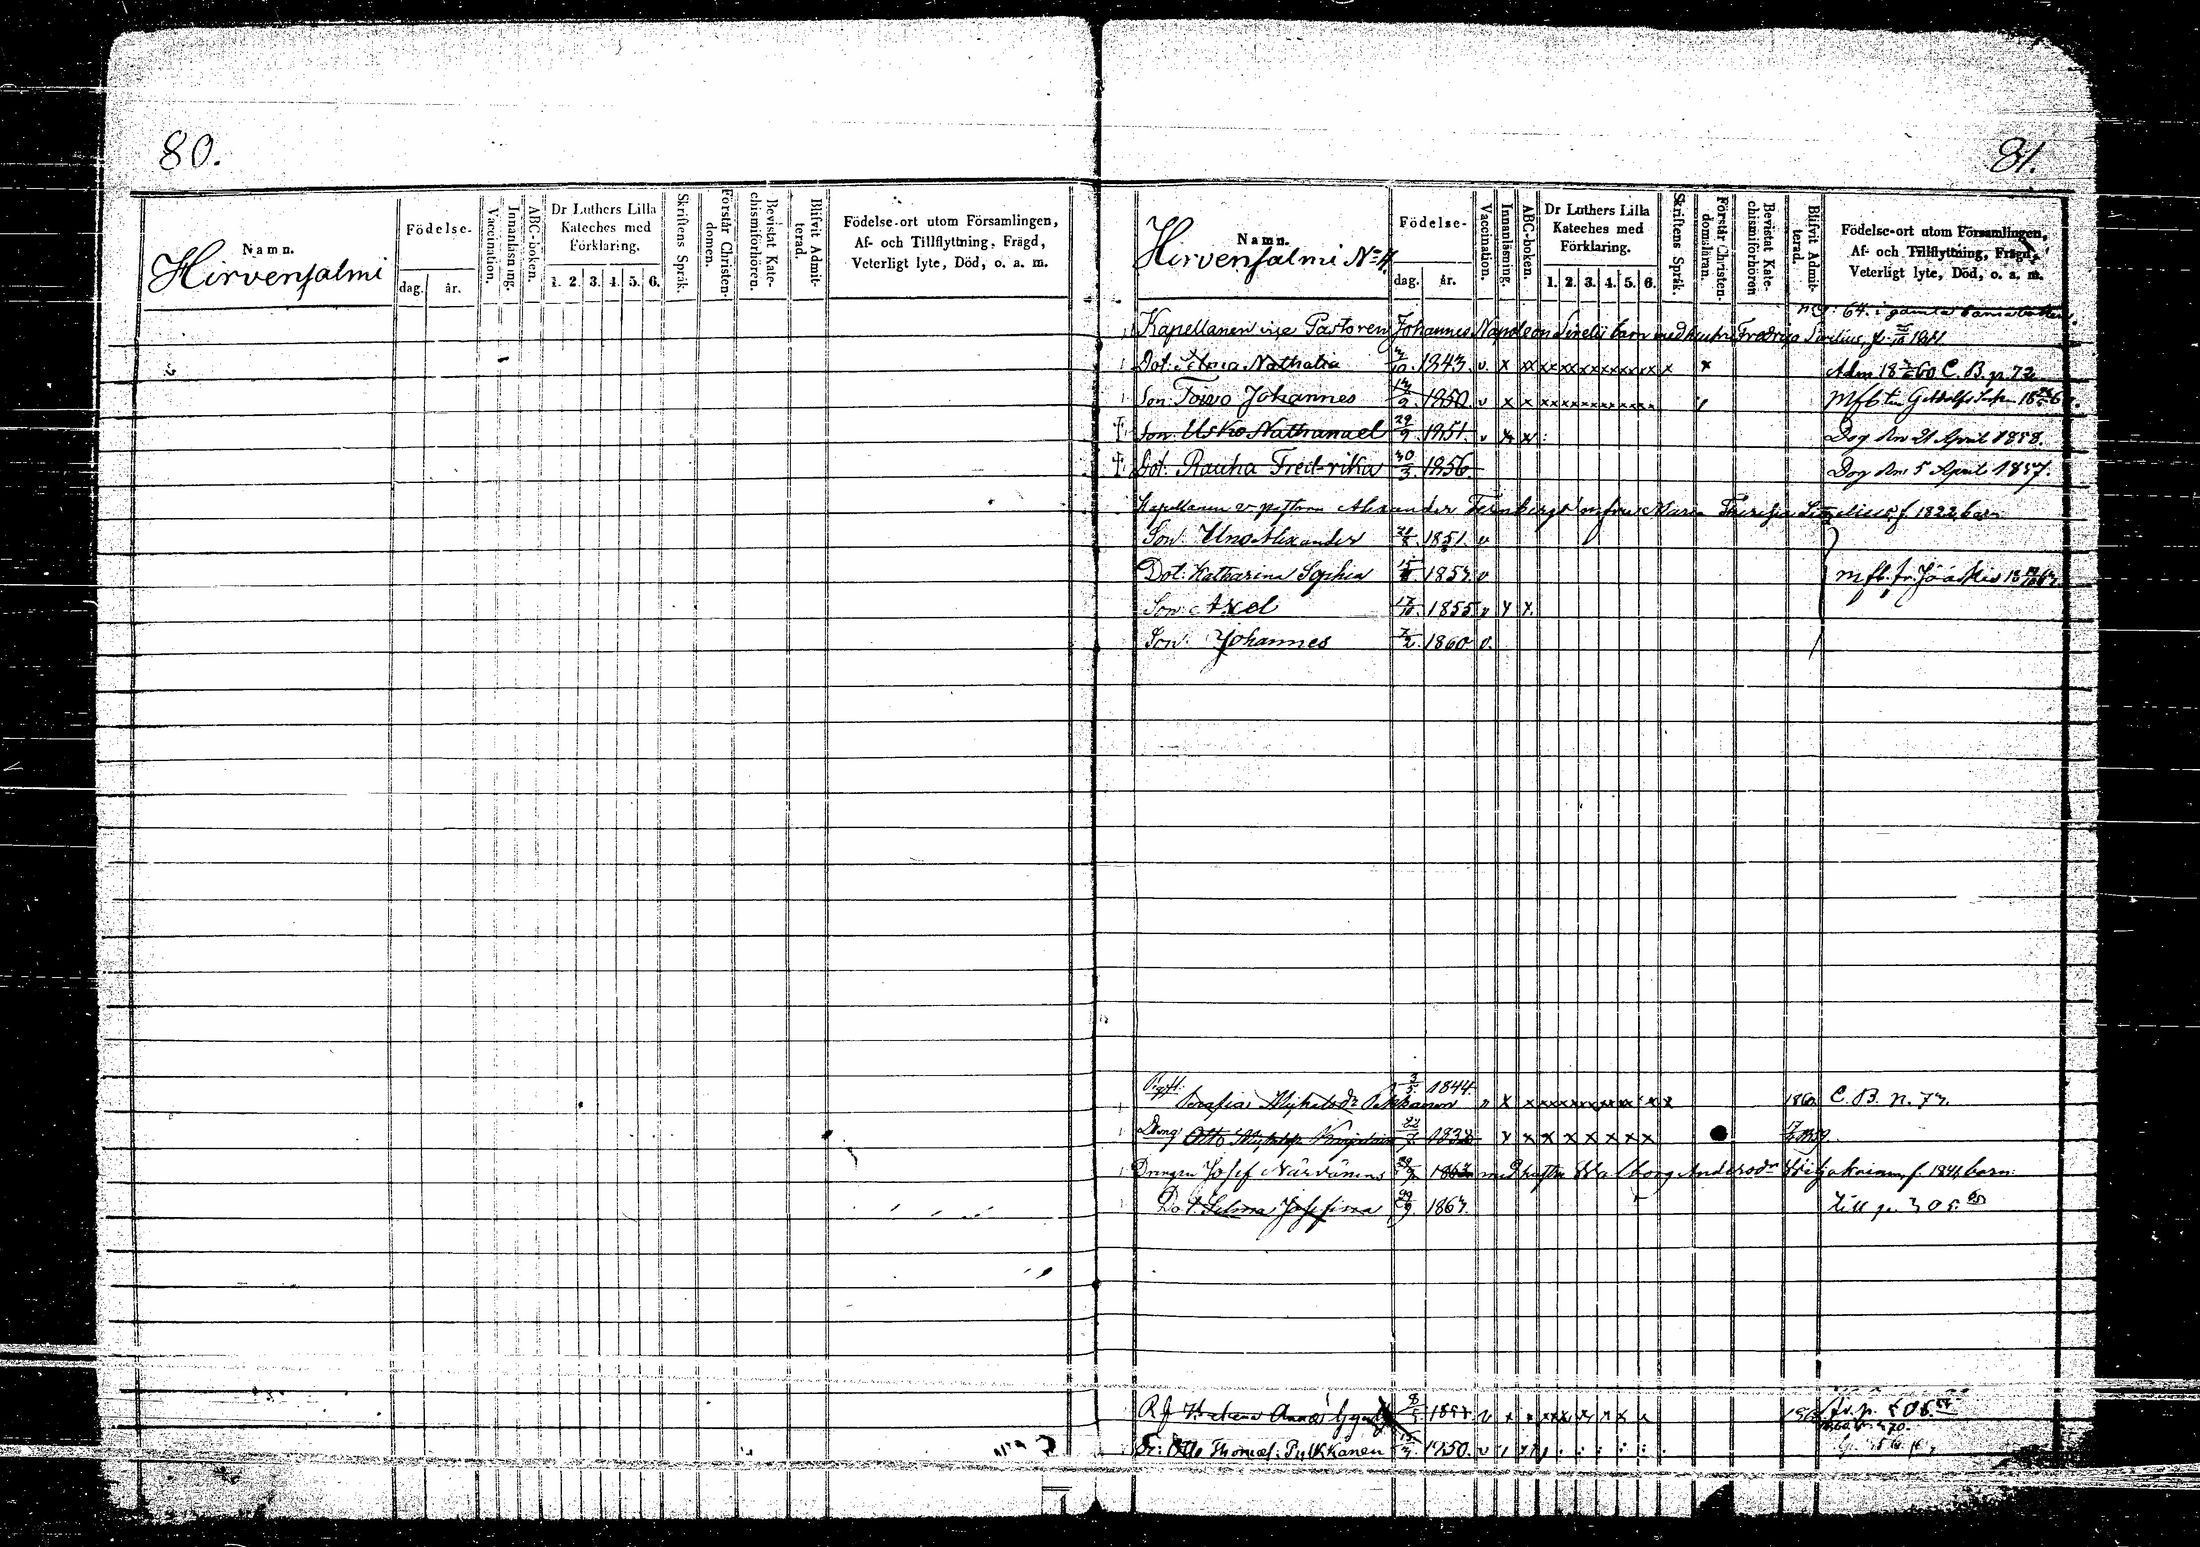 80.
Namn.
Hirvensalmi
Födelse-
dag. år.
Vaccination.
Innanläsning.
ABC-boken.
Dr Luthers Lilla
Kateches med
Förklaring.
1. 2. 3. 4. 5. 6.
Skriftens Språk.
Förstår Christen-
domen.
Bevistat Kate-
chismiförhören.
Blifvit Admit-
terad.
Födelse-ort utom Församlingen,
Af- och Tillflyttning, Frägd,
Veterligt lyte, Död, o. a. m.
81.
Namn.
Hirvensalmi No 4.
Födelse-
dag. år.
Vaccination.
Innanläsning.
ABC-boken.
Dr Luthers Lilla
Kateches med
Förklaring.
1. 2. 3. 4. 5. 6.
Skriftens Språk.
Förstår Christen-
domsläran.
Bevistat Kate-
chismiförhören
Blifvit Admit-
terad.
Födelse-ort utom Församlingen,
Af- och Tillflyttning, Frägd,
Veterligt lyte, Död, o. a. m.
64. i gamla barnaboken.
Kapellanen vice Pastoren Johannes Napoleon Sirelii barn med hustru Fredrica Sirelius, f.
Dot. Selma Nathalia 1843. v x xx xxxxxxxxxxxx x x Adm 18 60 C. B. p. 72
Son: Toivo Johannes 13/9 1850. v x x xxxxxxxxxxx
† Son: Usko Nathanael 29/9 1851. v x x Dog den 21 April 1858.
† Dot. Rauha Fredrika 30/3 1856. Dog den 5 April 1857.
Kapellanen v pastorn Alexander Ternbergs m frus Maria Theresia Sirelius, f. 1822, barn
Son: Uno Alexander 1851. v
Dot: Katharina Sophia 1853. v m fl. fr. Jääskis
Son: Axel 17/10 1855 v x x.
Son: Johannes 7/2 1860 v.
3/5 1844
Serafia Pekkanen v x x xxxxxxxxxx x x 1860 C. B. p. 73.
Dreng Otto 22/7 1838 x x x x x x x x
Drengen Josef Närvänens med hustru Walborg Andersdr f. 1841, barn:
Dot. Selma Josefina 29/9 1863. till p. 305.
8/5 v x x xxx x x x x
Dr: Otto Thomas: Pulkkanen 15/3 1850. v